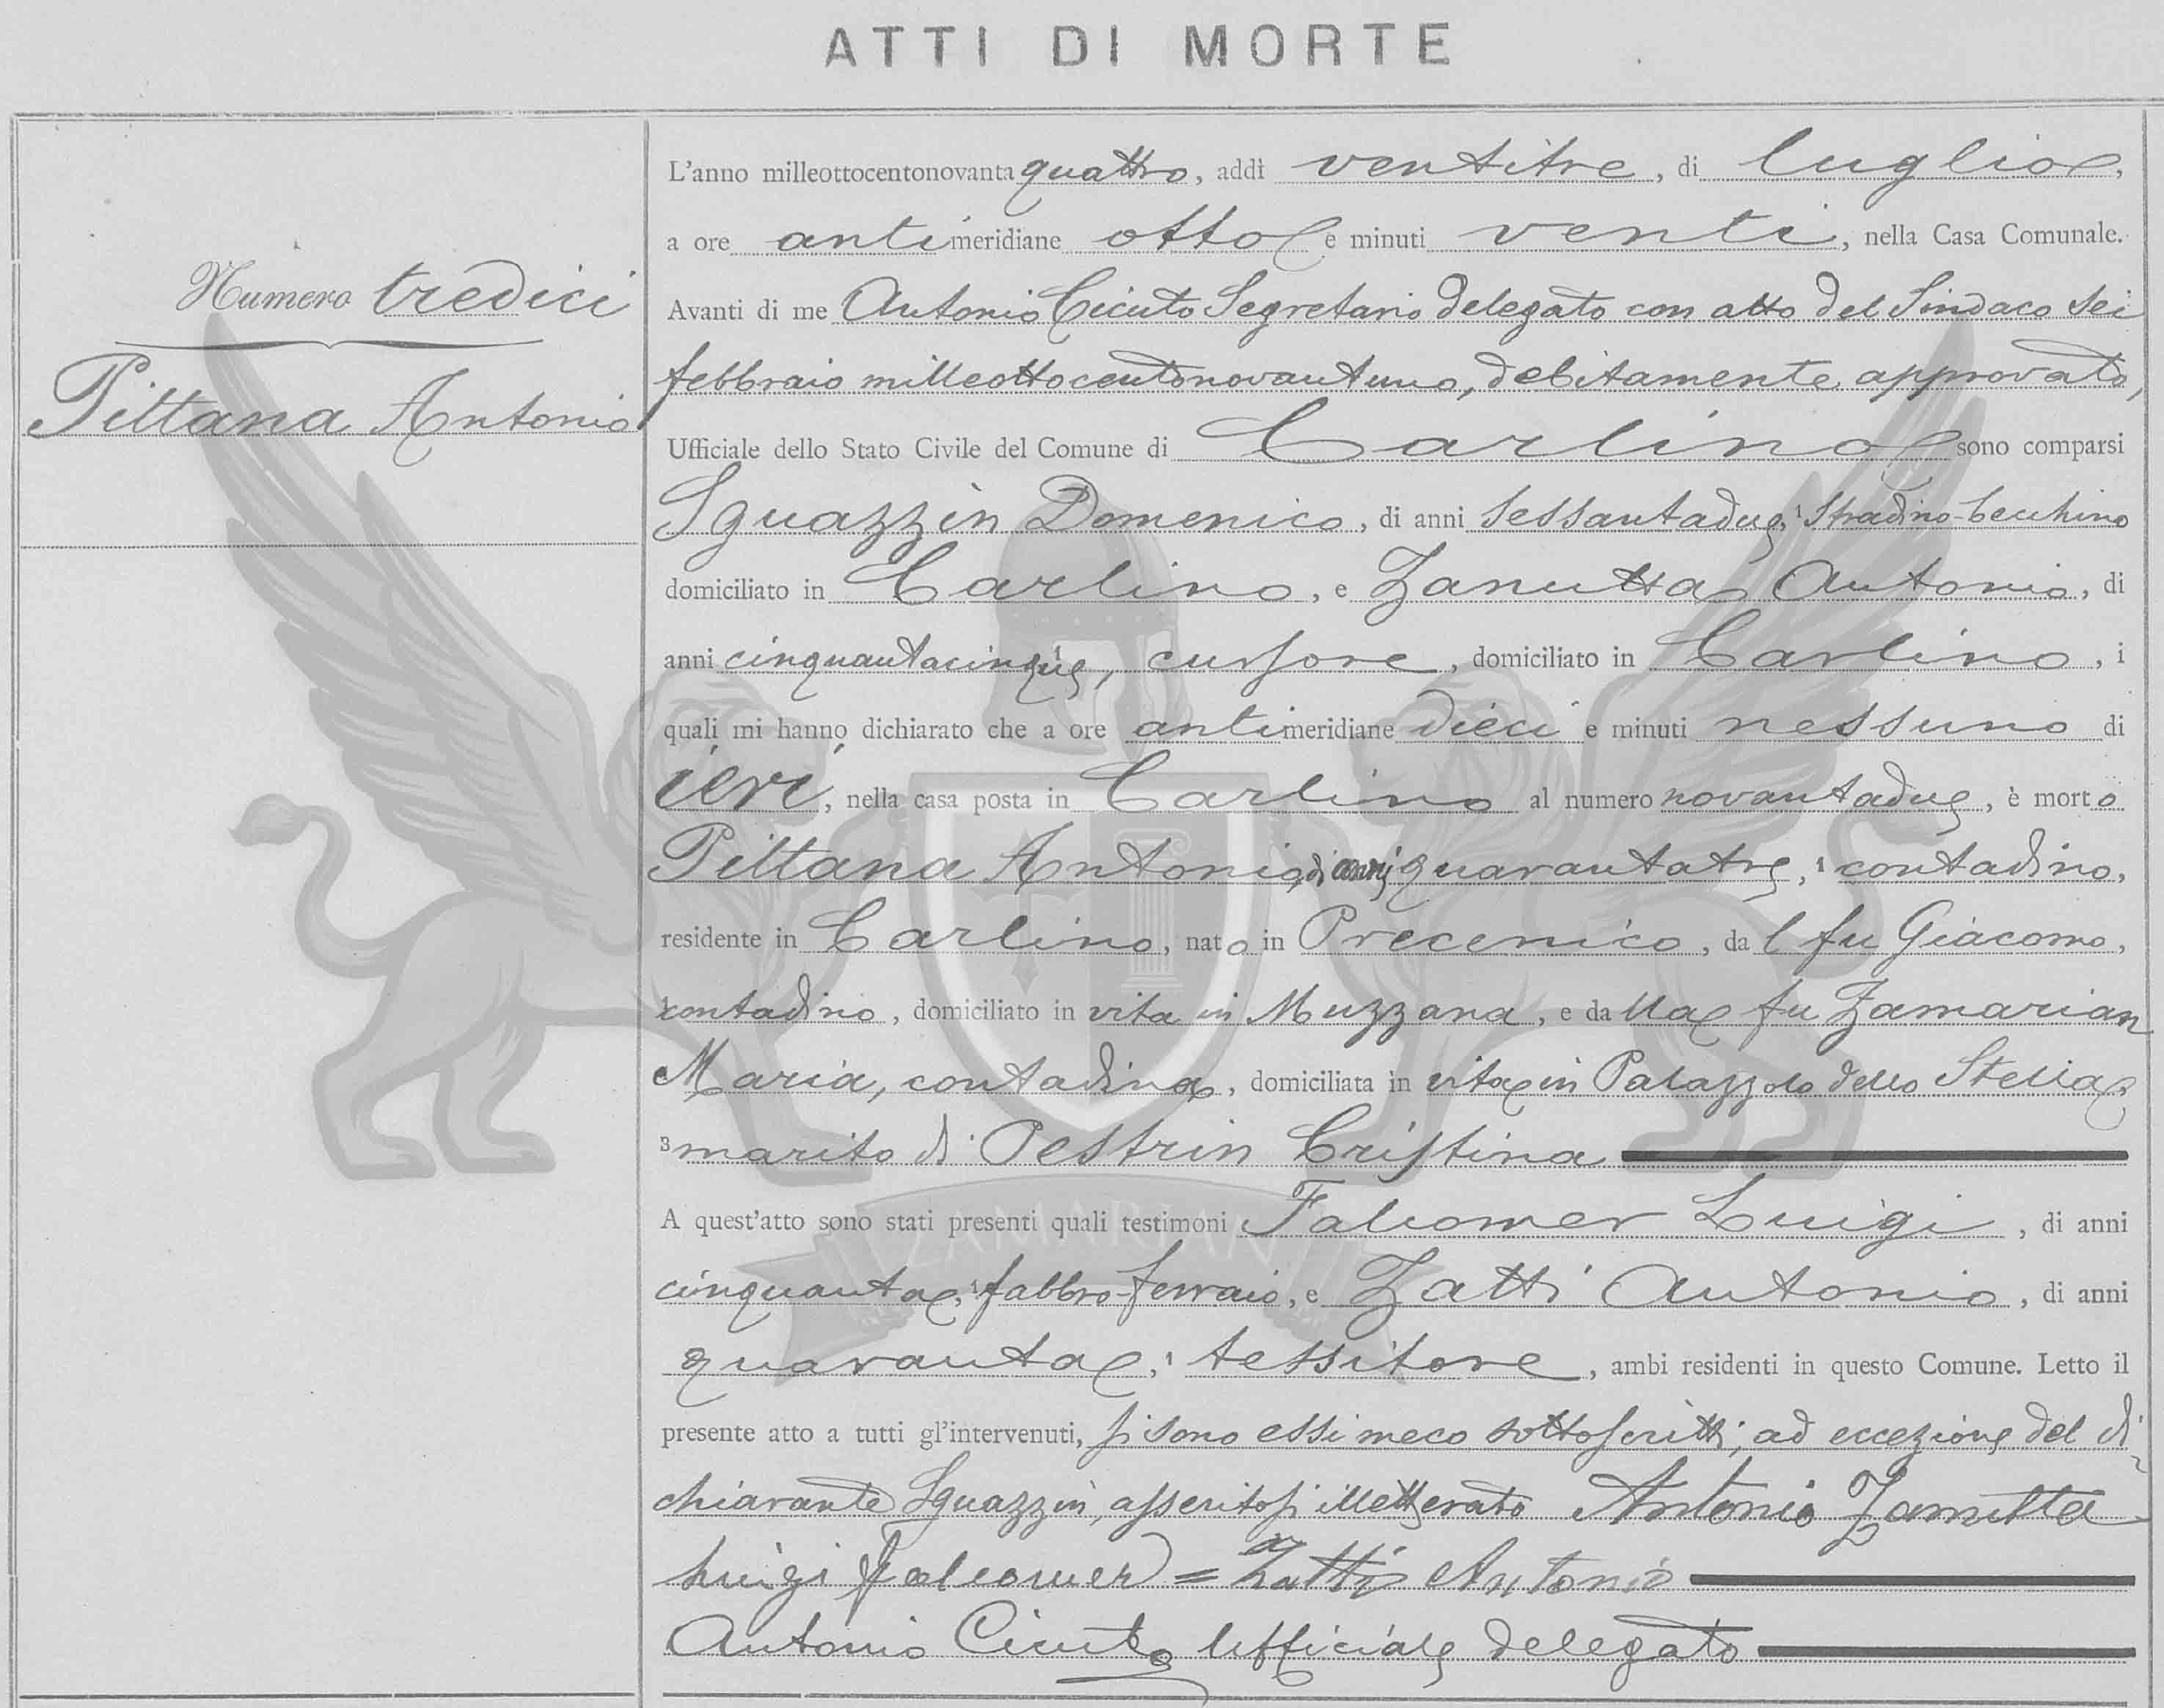 ATTI DI MORTE
Numero tredici
Pittana Antonio
L'anno milleottocentonovantaquattro, addì ventitre, di luglio,
a ore antimeridiane otto e minuti venti, nella Casa Comunale.
Avanti di me Antonio Cicuto Segretario delegato con atto del Sindaco sei
febbraio milleottocentonovantuno, debitamente approvato,
Ufficiale dello Stato Civile del Comune di Carlino sono comparsi
Sguazzin Domenico, di anni sessantadue, stradino-becchino
domiciliato in Carlino, e Zanutta Antonio, di
anni cinquantacinque, cursore, domiciliato in Carlino, i
quali mi hanno dichiarato che a ore antimeridiane dieci e minuti nessuno di
ieri, nella casa posta in Carlino al numero novantadue, è morto
Pittana Antonio, di anni quarantatre, contadino,
residente in Carlino, nato in Precenico, dal fu Giacomo,
contadino, domiciliato in vita in Muzzana, e dalla fu Zamarian
Maria, contadina, domiciliata in vita in Palazzolo dello Stella,
3 marito di Pestrin Cristina
A quest'atto sono stati presenti quali testimoni Falcomer Luigi, di anni
cinquanta, fabbro-ferraio, e Zatti Antonio, di anni
quaranta, tessitore, ambi residenti in questo Comune. Letto il
presente atto a tutti gl'intervenuti, si sono essi meco sottoscritti, ad eccezione del di-
chiarante Sguazzin, asseritosi illetterato Antonio Zanutta
Luigi Falcomer = Zatti Antonio
Antonio Cicuto Ufficiale delegato
ZAMARIAN